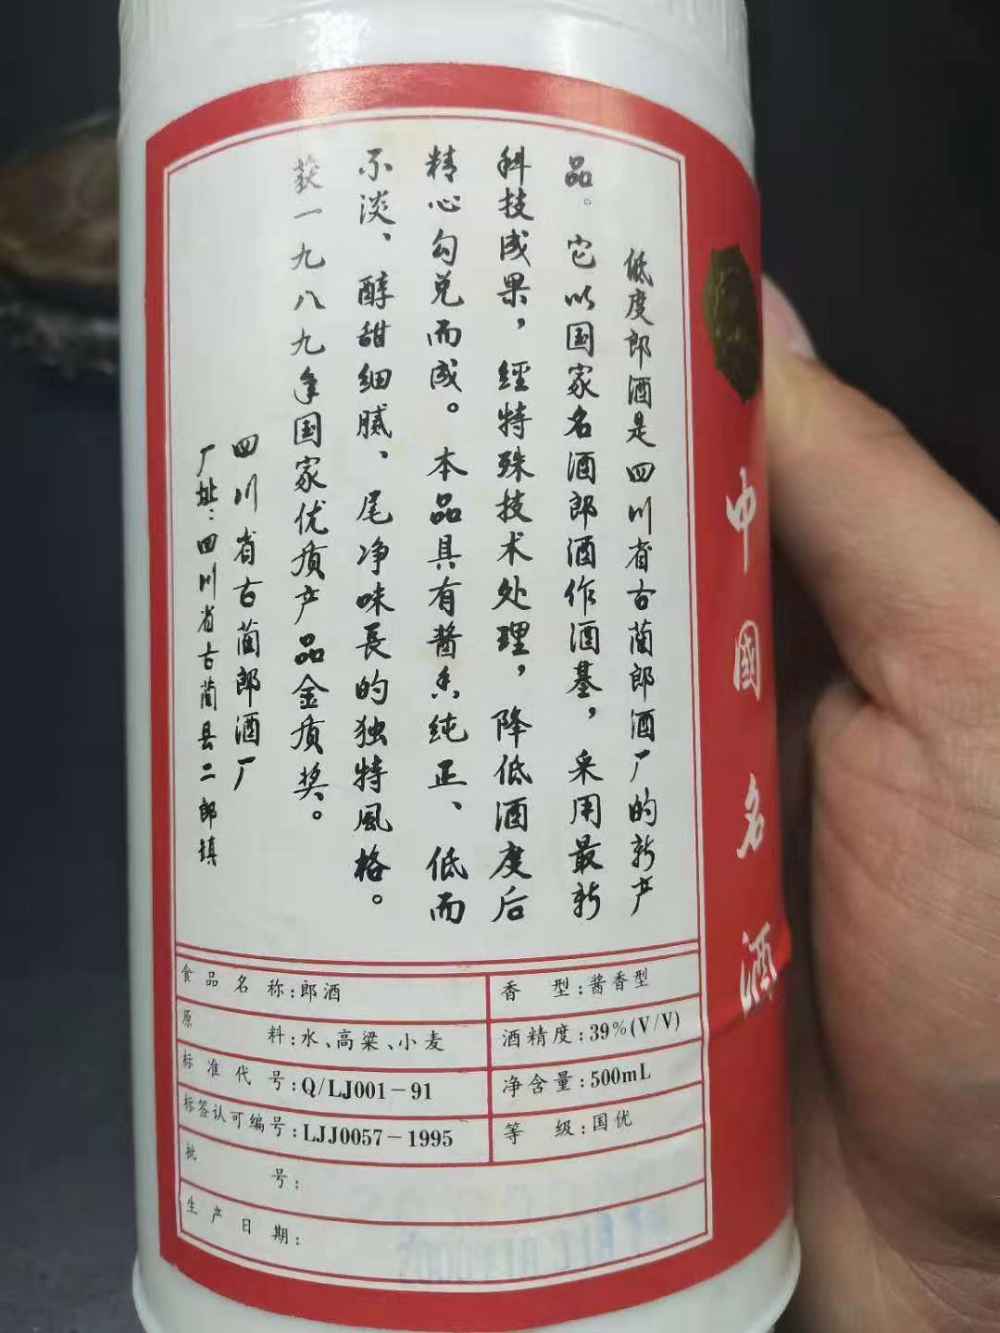 低度郎酒是四川省古蔺郎酒厂的新产
品。它以国家名酒郎酒作酒基，采用最新
科技成果，經特殊技术处理，降低酒度后
精心勾兑而成。本品具有酱香纯正、低而
不淡、醇甜细腻、尾净味長的独特風格。
获一九八九年国家优质产品金质奖。
四川省古蔺郎酒厂
厂址：四川省古蔺县二郎镇
食品名称：郎酒
香型：酱香型
原料：水、高粱、小麦
酒精度：39%(V/V)
标准代号：Q/LJ001-91
净含量：500mL
标签认可编号：LJJ0057-1995
等级：国优
批号：
生产日期：
中國名酒